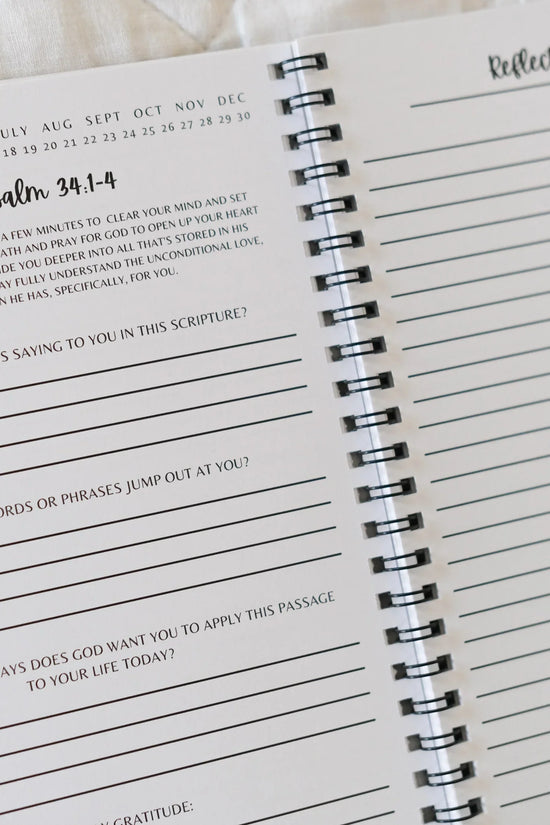 JULY AUG SEPT OCT NOV DEC
18 19 20 21 22 23 24 25 26 27 28 29 30
34:1-4
A FEW MINUTES TO CLEAR YOUR MIND AND SET
ATH AND PRAY FOR GOD TO OPEN UP YOUR HEART
IDE YOU DEEPER INTO ALL THAT'S STORED IN HIS
AY FULLY UNDERSTAND THE UNCONDITIONAL LOVE,
N HE HAS, SPECIFICALLY, FOR YOU.
S SAYING TO YOU IN THIS SCRIPTURE?
ORDS OR PHRASES JUMP OUT AT YOU?
AYS DOES GOD WANT YOU TO APPLY THIS PASSAGE
TO YOUR LIFE TODAY?
Y GRATITUDE:
Reflect